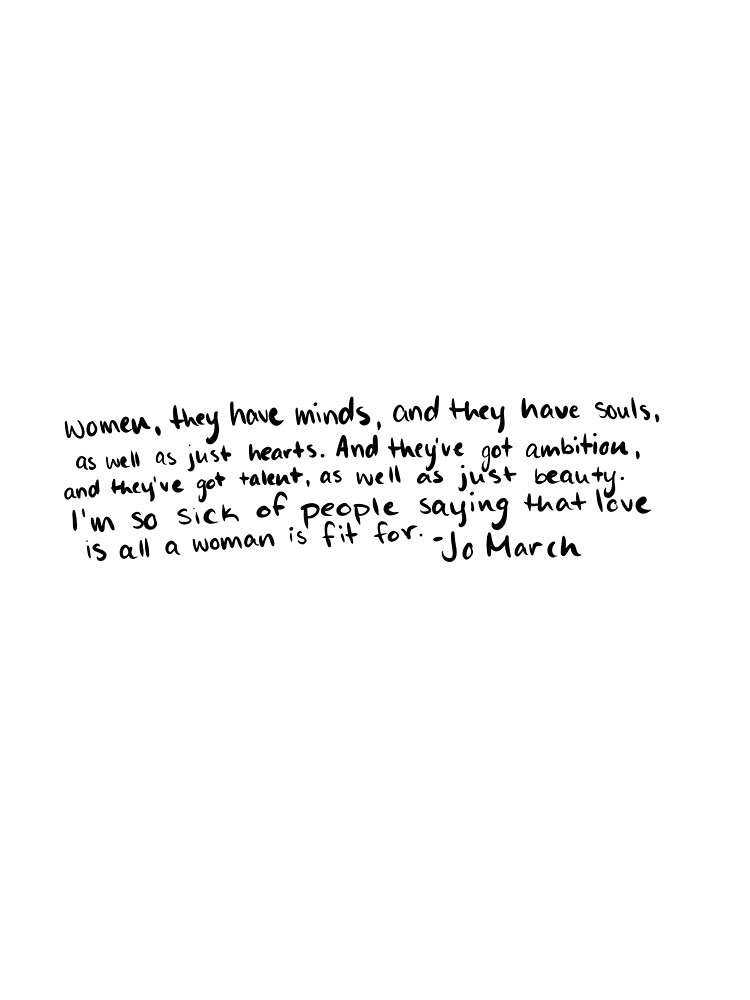 Women, they have minds, and they have souls,
as well as just hearts. And they've got ambition,
and they've got talent, as well as just beauty.
I'm so sick of people saying that love
is all a woman is fit for. -Jo March